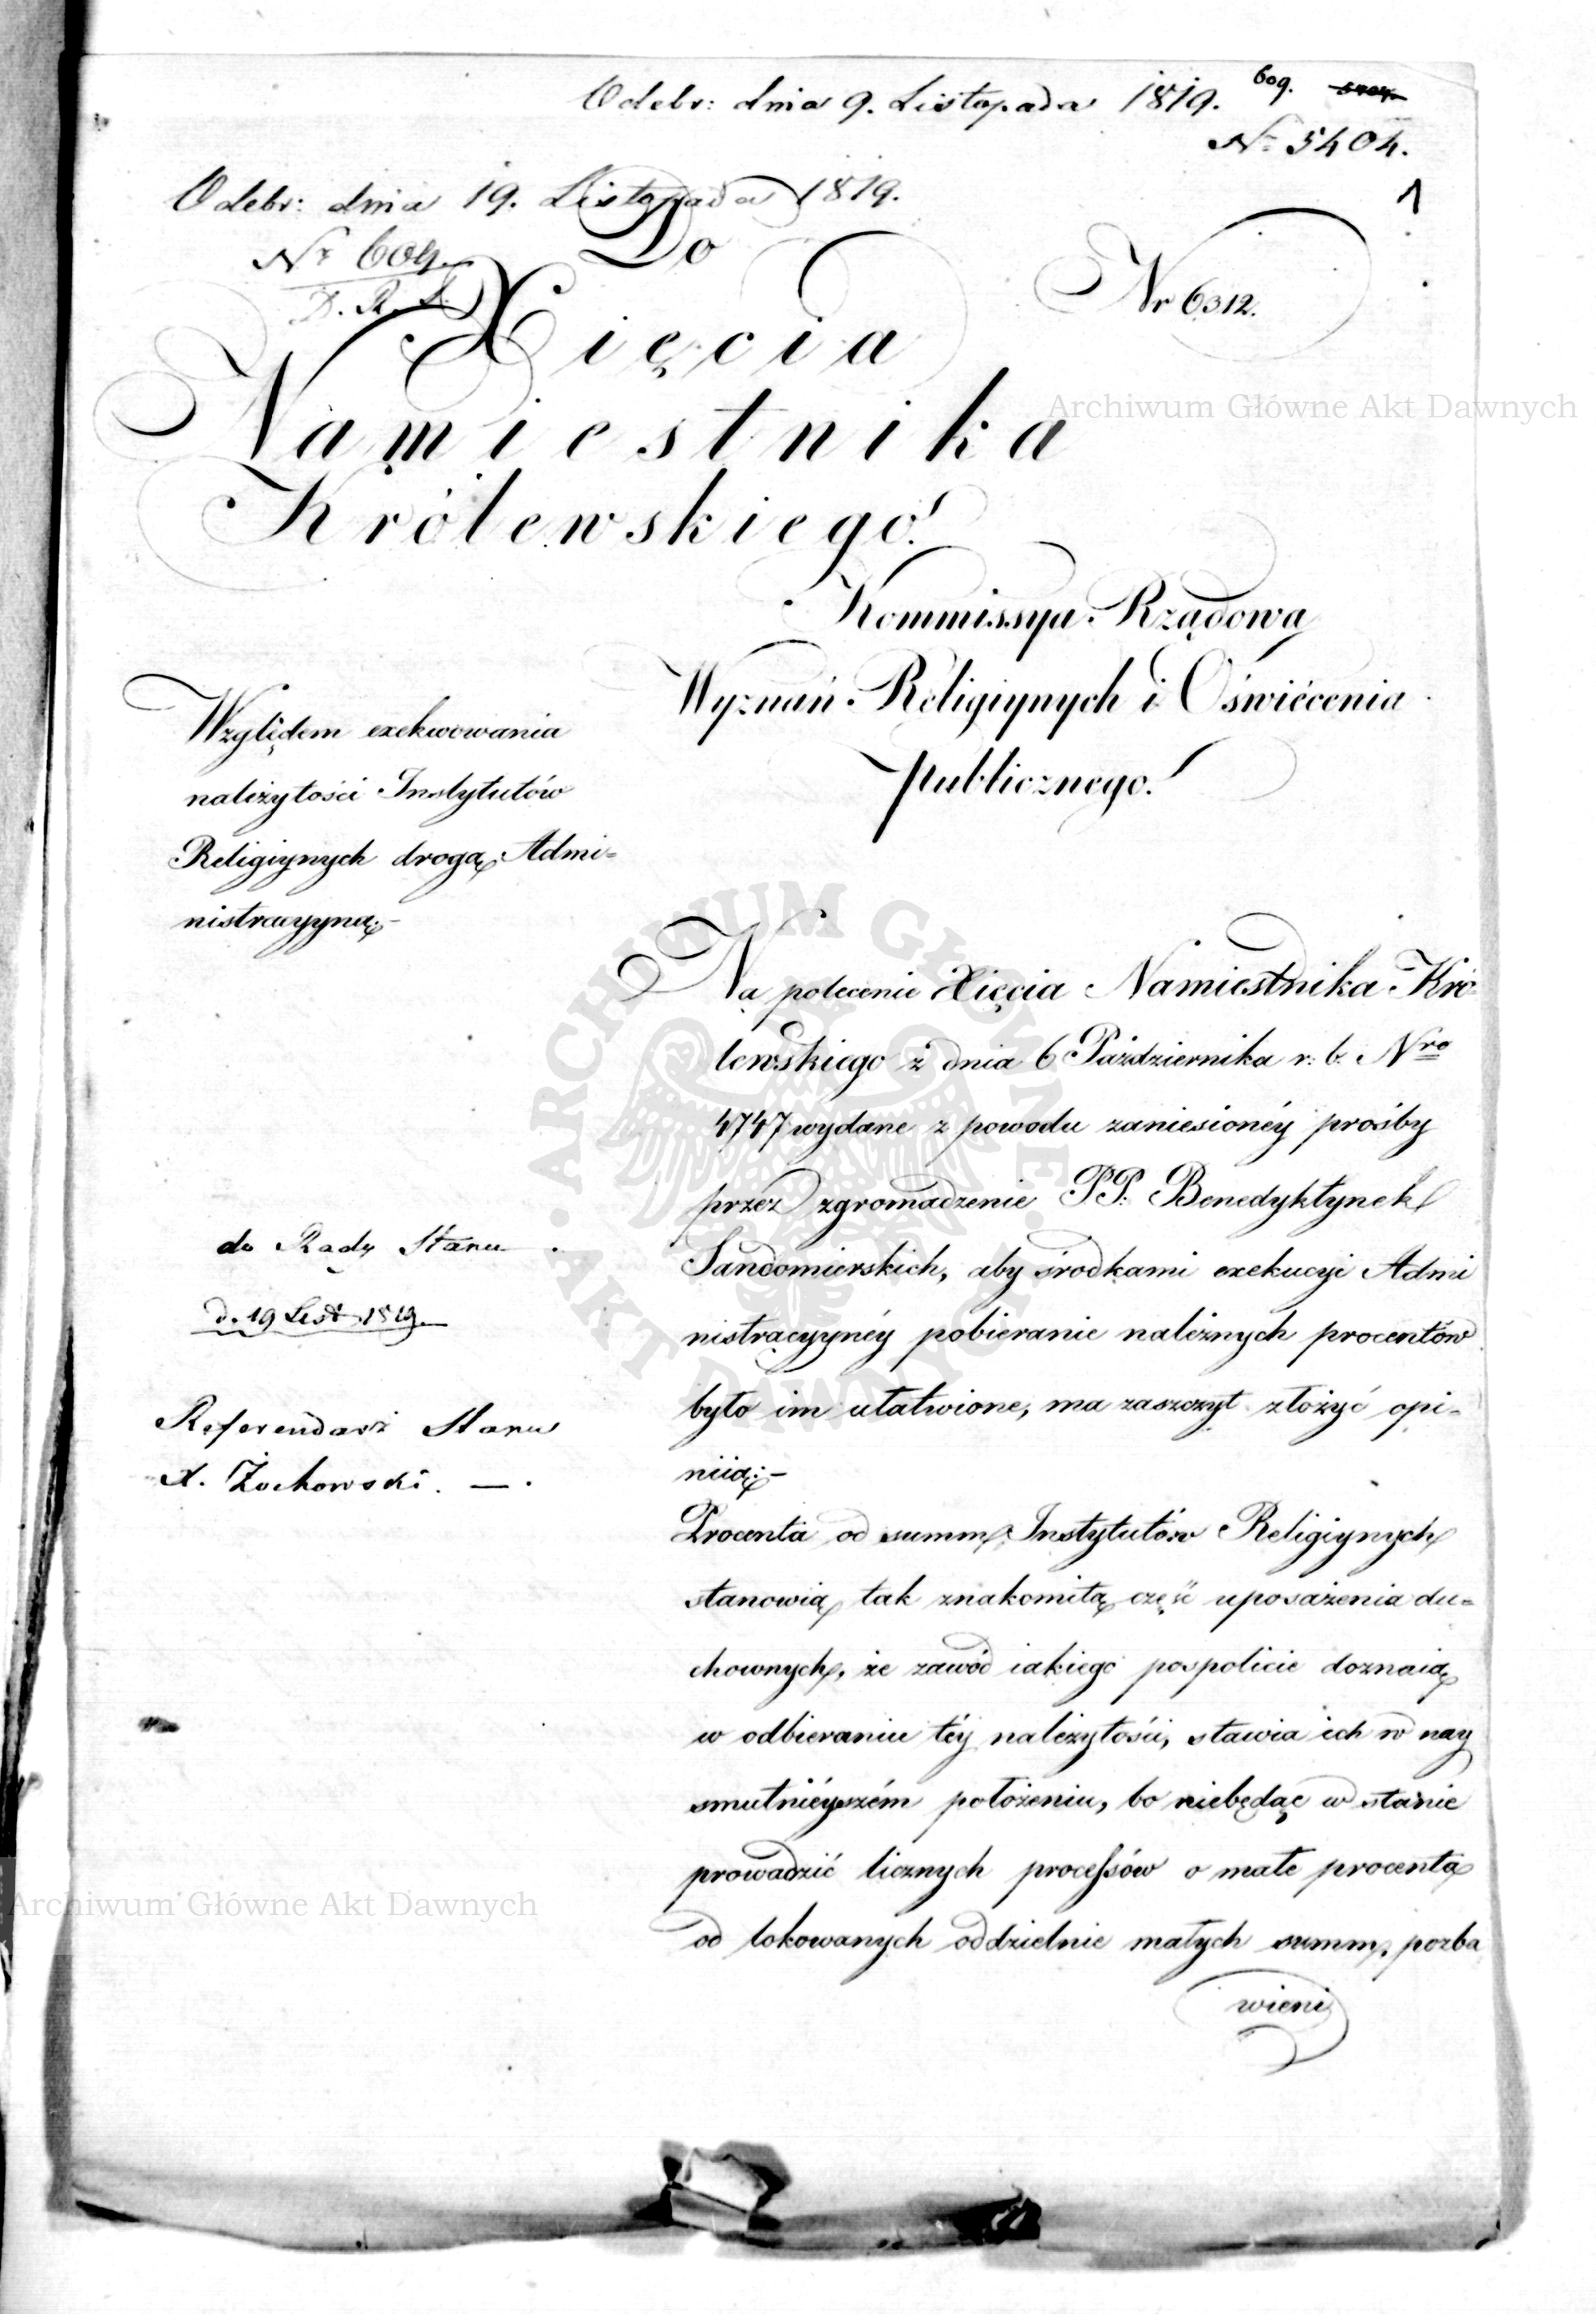 Odebr: dnia 9. Listopada 1819.
609. 5404.
Nr 5404.
1
Odebr: dnia 19. Listopada 1819.
Nr 609.
D. R. S.
Nr 6312.
Do
Xięcia
Namiestnika
Królewskiego!
Kommissya Rządowa
Wyznań Religiynych i Oświécenia
publicznego!
Względem exekwowania
należytości Instytutów
Religiynych drogą Admi=
nistracyyną.-
Na polecenie Xięcia Namiestnika Kró-
lewskiego z dnia 6 Października r: b: Nro
4747 wydane z powodu zaniesionéy prośby
przez zgromadzenie PP: Benedyktynek
Sandomierskich, aby środkami exekucyi Admi
nistracyynéy pobieranie należnych procentów
było im ułatwione, ma zaszczyt złożyć opi-
niią:-
do Rady Stanu
d. 19 List 1819.
Referendarz Stanu
X. Żochowski. —.
Procenta od summ Instytutów Religiynych
stanowią tak znakomitą część uposażenia du=
chownych, że zawód iakiego pospolicie doznaią
w odbieraniu téy należytości, stawia ich w nay
smutniéyszém położeniu, bo niebędąc w stanie
prowadzić licznych processów o małe procenta
od lokowanych oddzielnie małych summ, pozba
wieni
Archiwum Główne Akt Dawnych
ARCHIWUM GŁÓWNE · AKT DAWNYCH ·
Archiwum Główne Akt Dawnych